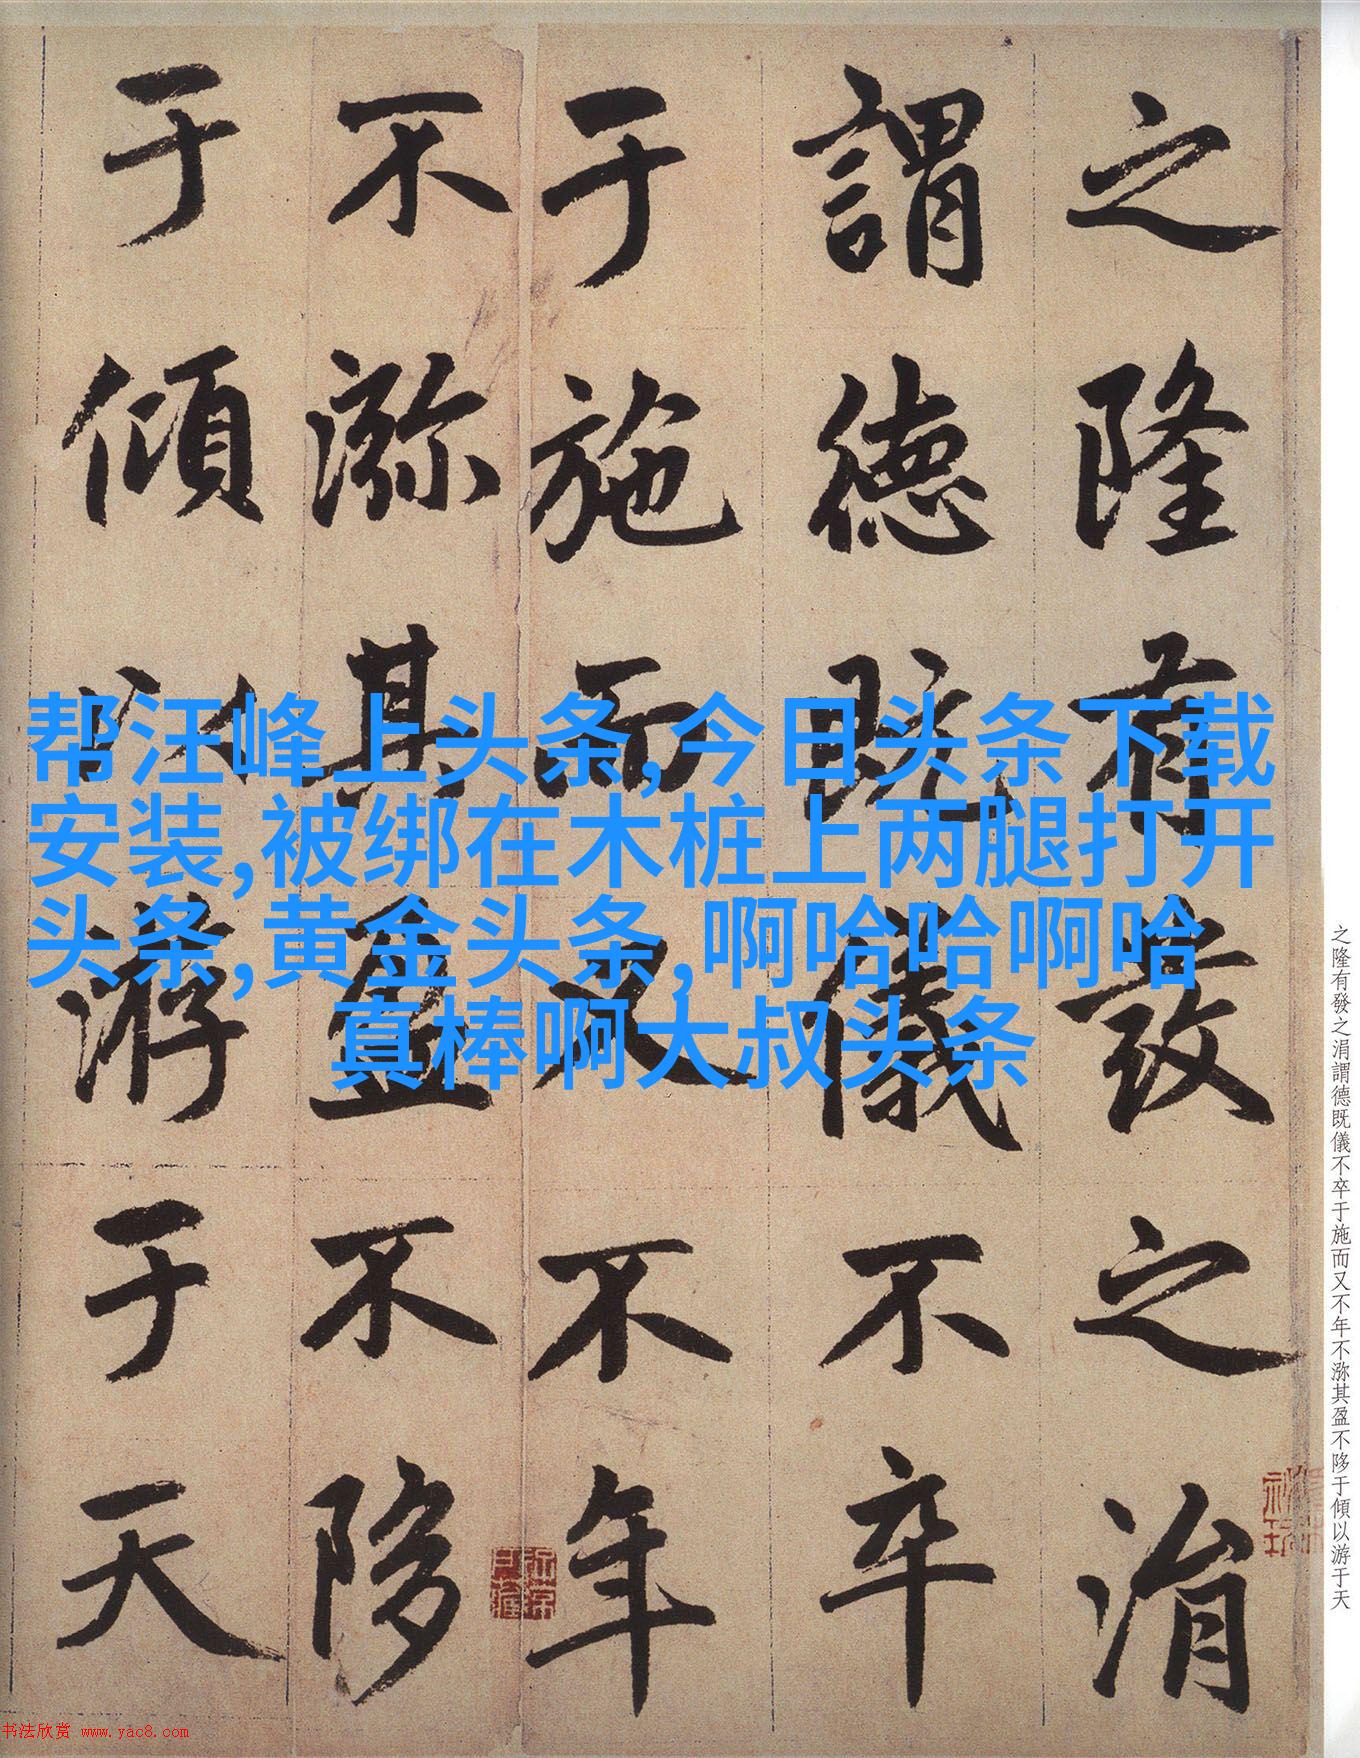 之隆有發之涓
謂德既儀不卒
于施而又不年
不㳽其盈不陊
于傾以游于天
帮汪峰上头条,今日头条下载
安装,被绑在木桩上两腿打开
头条,黄金头条,啊哈哈啊哈
真棒啊大叔头条
之隆有發之涓謂德既儀不卒于施而又不年不㳽其盈不陊于傾以游于天
书法欣赏 www.yac8.com